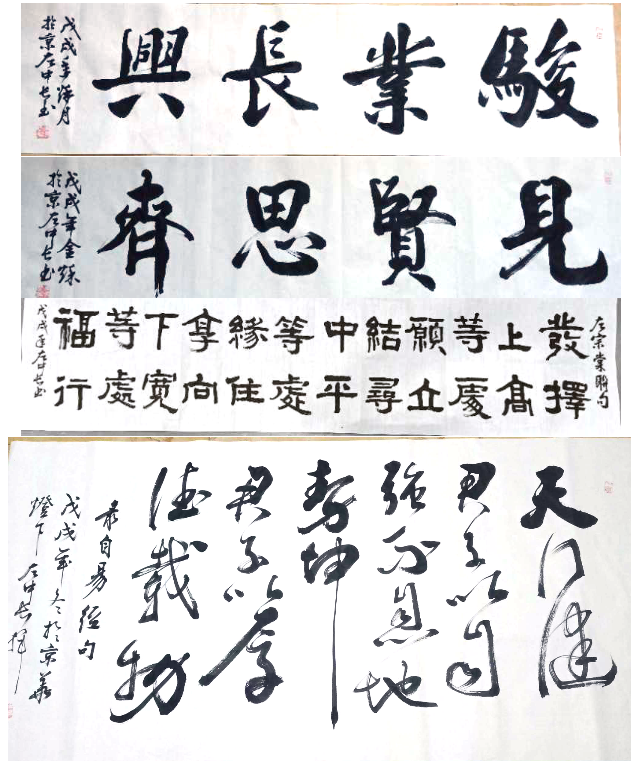 駿業長興
戊戌年月
於京左中長书
見賢思齊
戊戌年金秌
於京左中長书
左宗棠聯句
發上等願結中等緣享下等福
擇高處立尋平處住向寬處行
戊戌年左中長书
天行健
君子以自
強不息地
勢坤
君子以厚
德載物
录自易經句
戊戌年冬於京華
燈下左中長揮